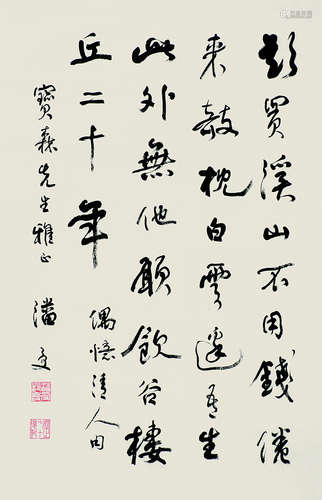 買溪山不用錢倦
来敧枕白雲邊吾生
此外無他願飲谷棲
丘二十年
偶憶清人
寶森先生雅正
潘受